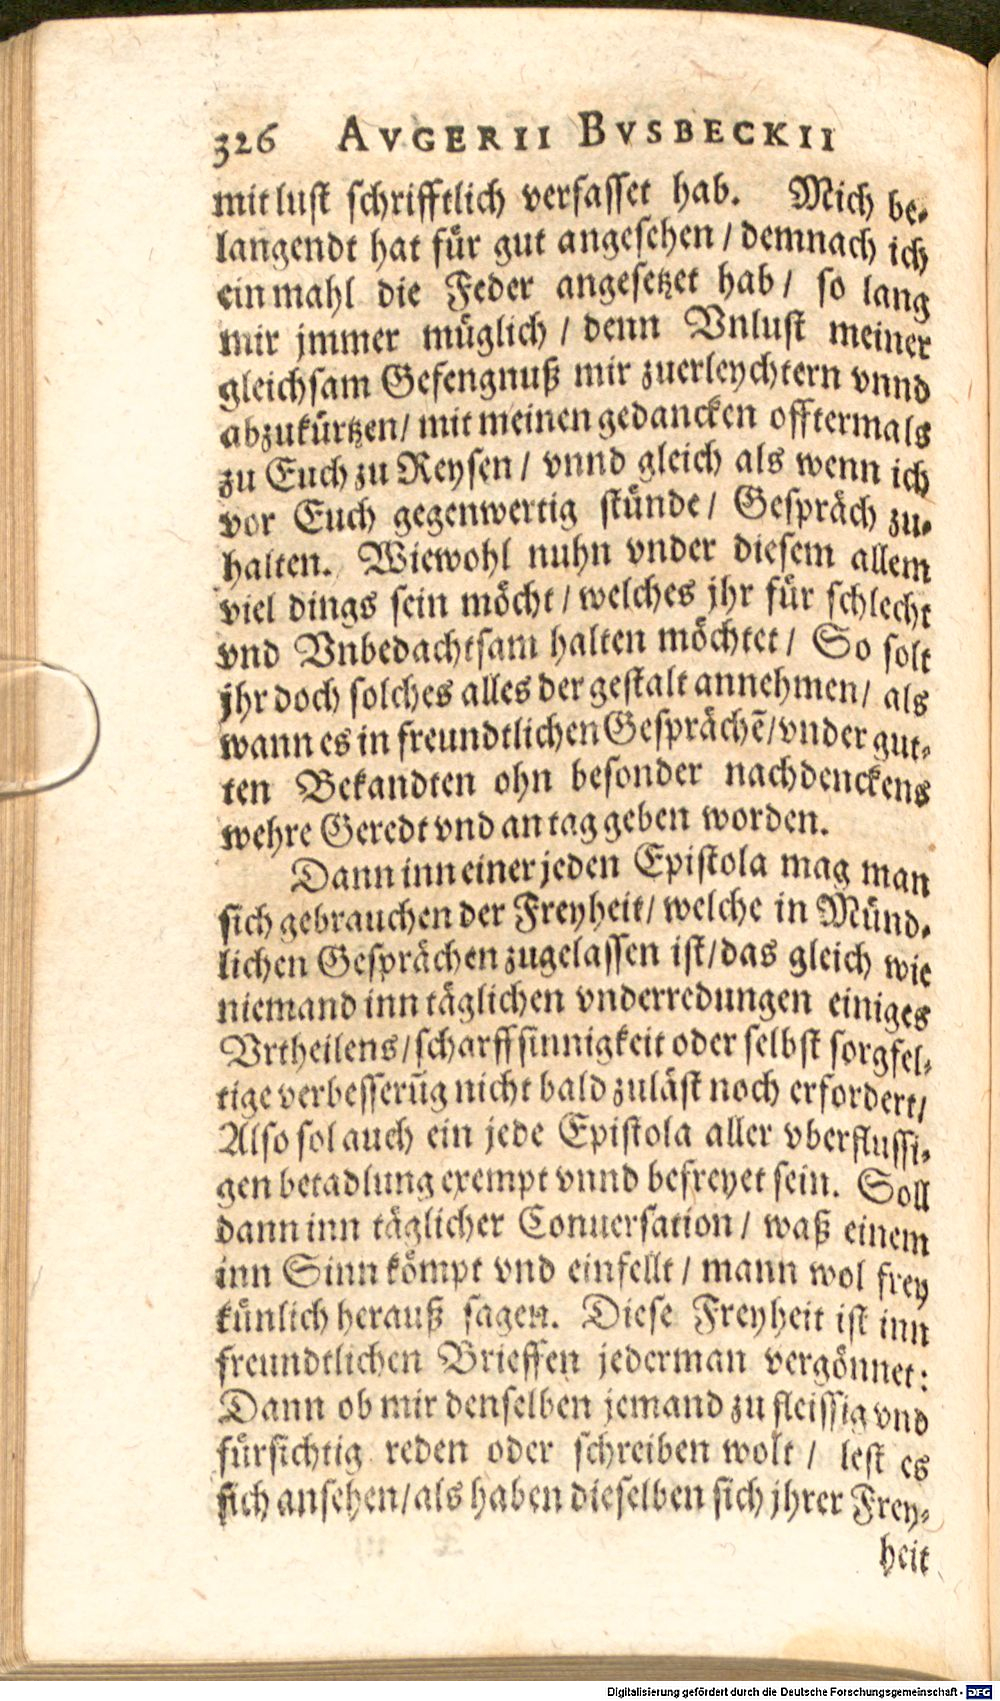 326 AVGERII BVSBECKII
mit lust schrifftlich verfasset hab. Mich be-
langendt hat für gut angesehen / demnach ich
ein mahl die Feder angesetzet hab / so lang
mir jmmer müglich / denn Vnlust meiner
gleichsam Gefengnuß mir zuerleychtern vnnd
abzukürtzen / mit meinen gedancken offtermals
zu Euch zu Reysen / vnnd gleich als wenn ich
vor Euch gegenwertig stünde / Gespräch zu-
halten. Wiewohl nuhn vnder diesem allem
viel dings sein möcht / welches jhr für schlecht
vnd Vnbedachtsam halten möchtet / So solt
jhr doch solches alles der gestalt annehmen / als
wann es in freundtlichen Gesprächẽ / vnder gut-
ten Bekandten ohn besonder nachdenckens
wehre Geredt vnd an tag geben worden.
Dann inn einer jeden Epistola mag man
sich gebrauchen der Freyheit / welche in Münd-
lichen Gesprächen zugelassen ist / das gleich wie
niemand inn täglichen vnderredungen einiges
Vrtheilens / scharffsinnigkeit oder selbst sorgfel-
tige verbesserũg nicht bald zuläst noch erfordert /
Also sol auch ein jede Epistola aller vberflussi-
gen betadlung exempt vnnd befreyet sein. Soll
dann inn täglicher Conuersation / waß einem
inn Sinn kömpt vnd einfellt / mann wol frey
künlich herauß sagen. Diese Freyheit ist inn
freundtlichen Brieffen jederman vergönnet:
Dann ob mir denselben jemand zu fleissig vnd
fürsichtig reden oder schreiben wolt / lest es
sich ansehen / als haben dieselben sich jhrer Frey-
heit
Digitalisierung gefördert durch die Deutsche Forschungsgemeinschaft - DFG